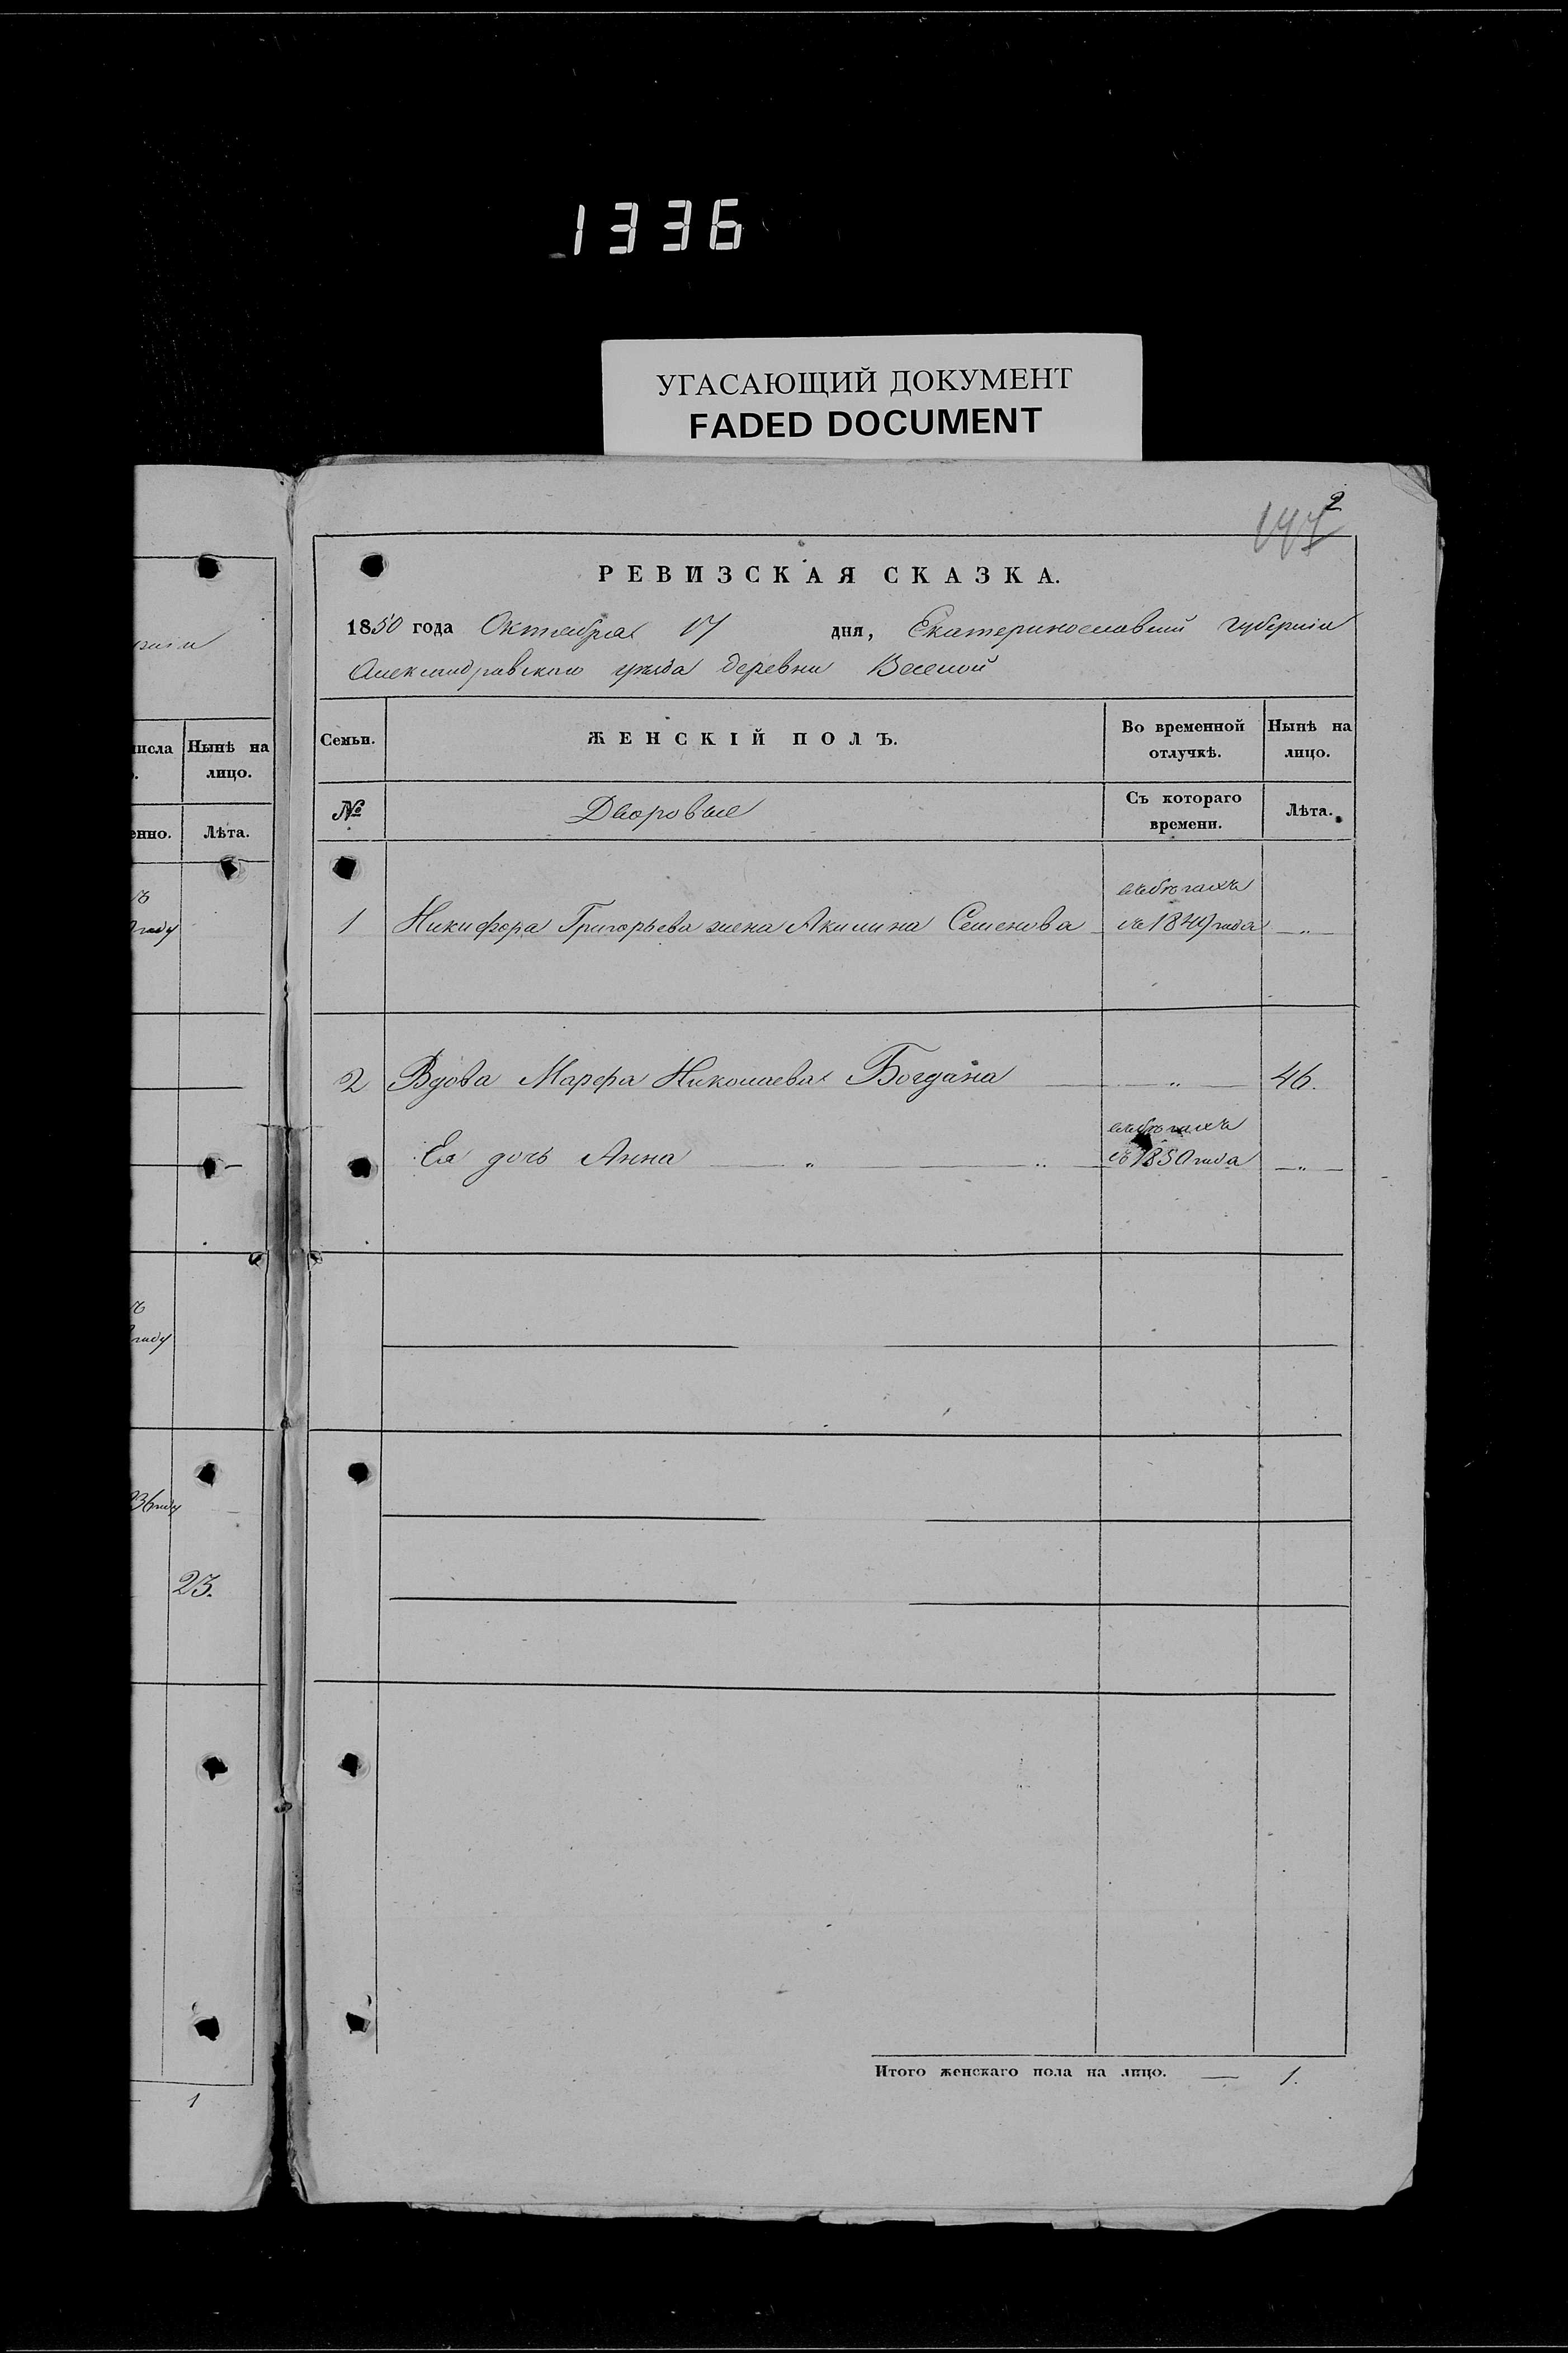 1336
УГАСАЮЩИЙ ДОКУМЕНТ
FADED DOCUMENT
2
РЕВИЗСКАЯ СКАЗКА.
1850 года Октября 17 дня, Екатеринославской губернии
Александровского уезда деревни Веселой
числа
Нынѣ на лицо.
Лѣта.
году
году
36 году
23.
1
Семьи.
ЖЕНСКІЙ ПОЛЪ.
Во временной отлучкѣ.
Нынѣ на лицо.
№
Дворовые
Съ котораго времени.
Лѣта.
въ бегахъ
1 Никифора Григорьева жена Акилина Семенова съ 1849 года „
2 Вдова Марфа Николаева Богдана „ 46.
въ бегахъ
Ея дочь Анна „ „ съ 1850 года „
Итого женскаго пола на лицо. 1.